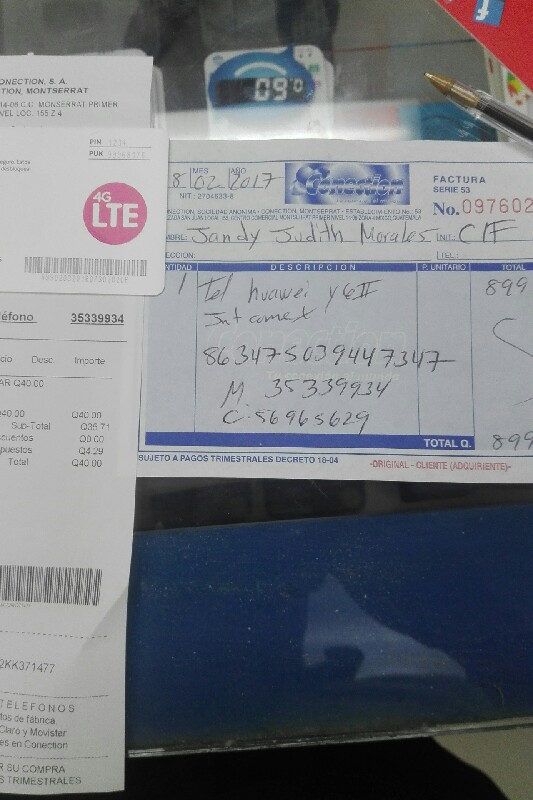 ONECTION, S. A.
TION, MONTSERRAT
14-06 C.C. MONSERRAT PRIMER
VEL LOC. 155 Z 4
PIN
PUK
4G
LTE
éfono 35339934
cio Desc Importe
AR Q40.00
Q40.00 Q40.00
Sub-Total Q35.71
cuentos Q0.00
puestos Q4.29
Total Q40.00
2KK371477
TELEFONOS
tos de fábrica.
Claro y Movistar
es en Conection
R SU COMPRA
S TRIMESTRALES
09
MES AÑO
8 02 2017
NIT.: 2704833-8
Conection
FACTURA
SERIE 53
No. 097602
NECTION, SOCIEDAD ANONIMA - CONECTION, MONTSERRAT - ESTABLECIMIENTO No. 53
MBRE: Jandy Judith Morales NIT.: C/F
ECCION: TEL.:
NTIDAD DESCRIPCION P. UNITARIO TOTAL
1 Tel huawei y6II 899
Intcomex
863475039447347
M. 35339934
C. 56965629
TOTAL Q. 899
SUJETO A PAGOS TRIMESTRALES DECRETO 18-04 -ORIGINAL - CLIENTE (ADQUIRIENTE)-